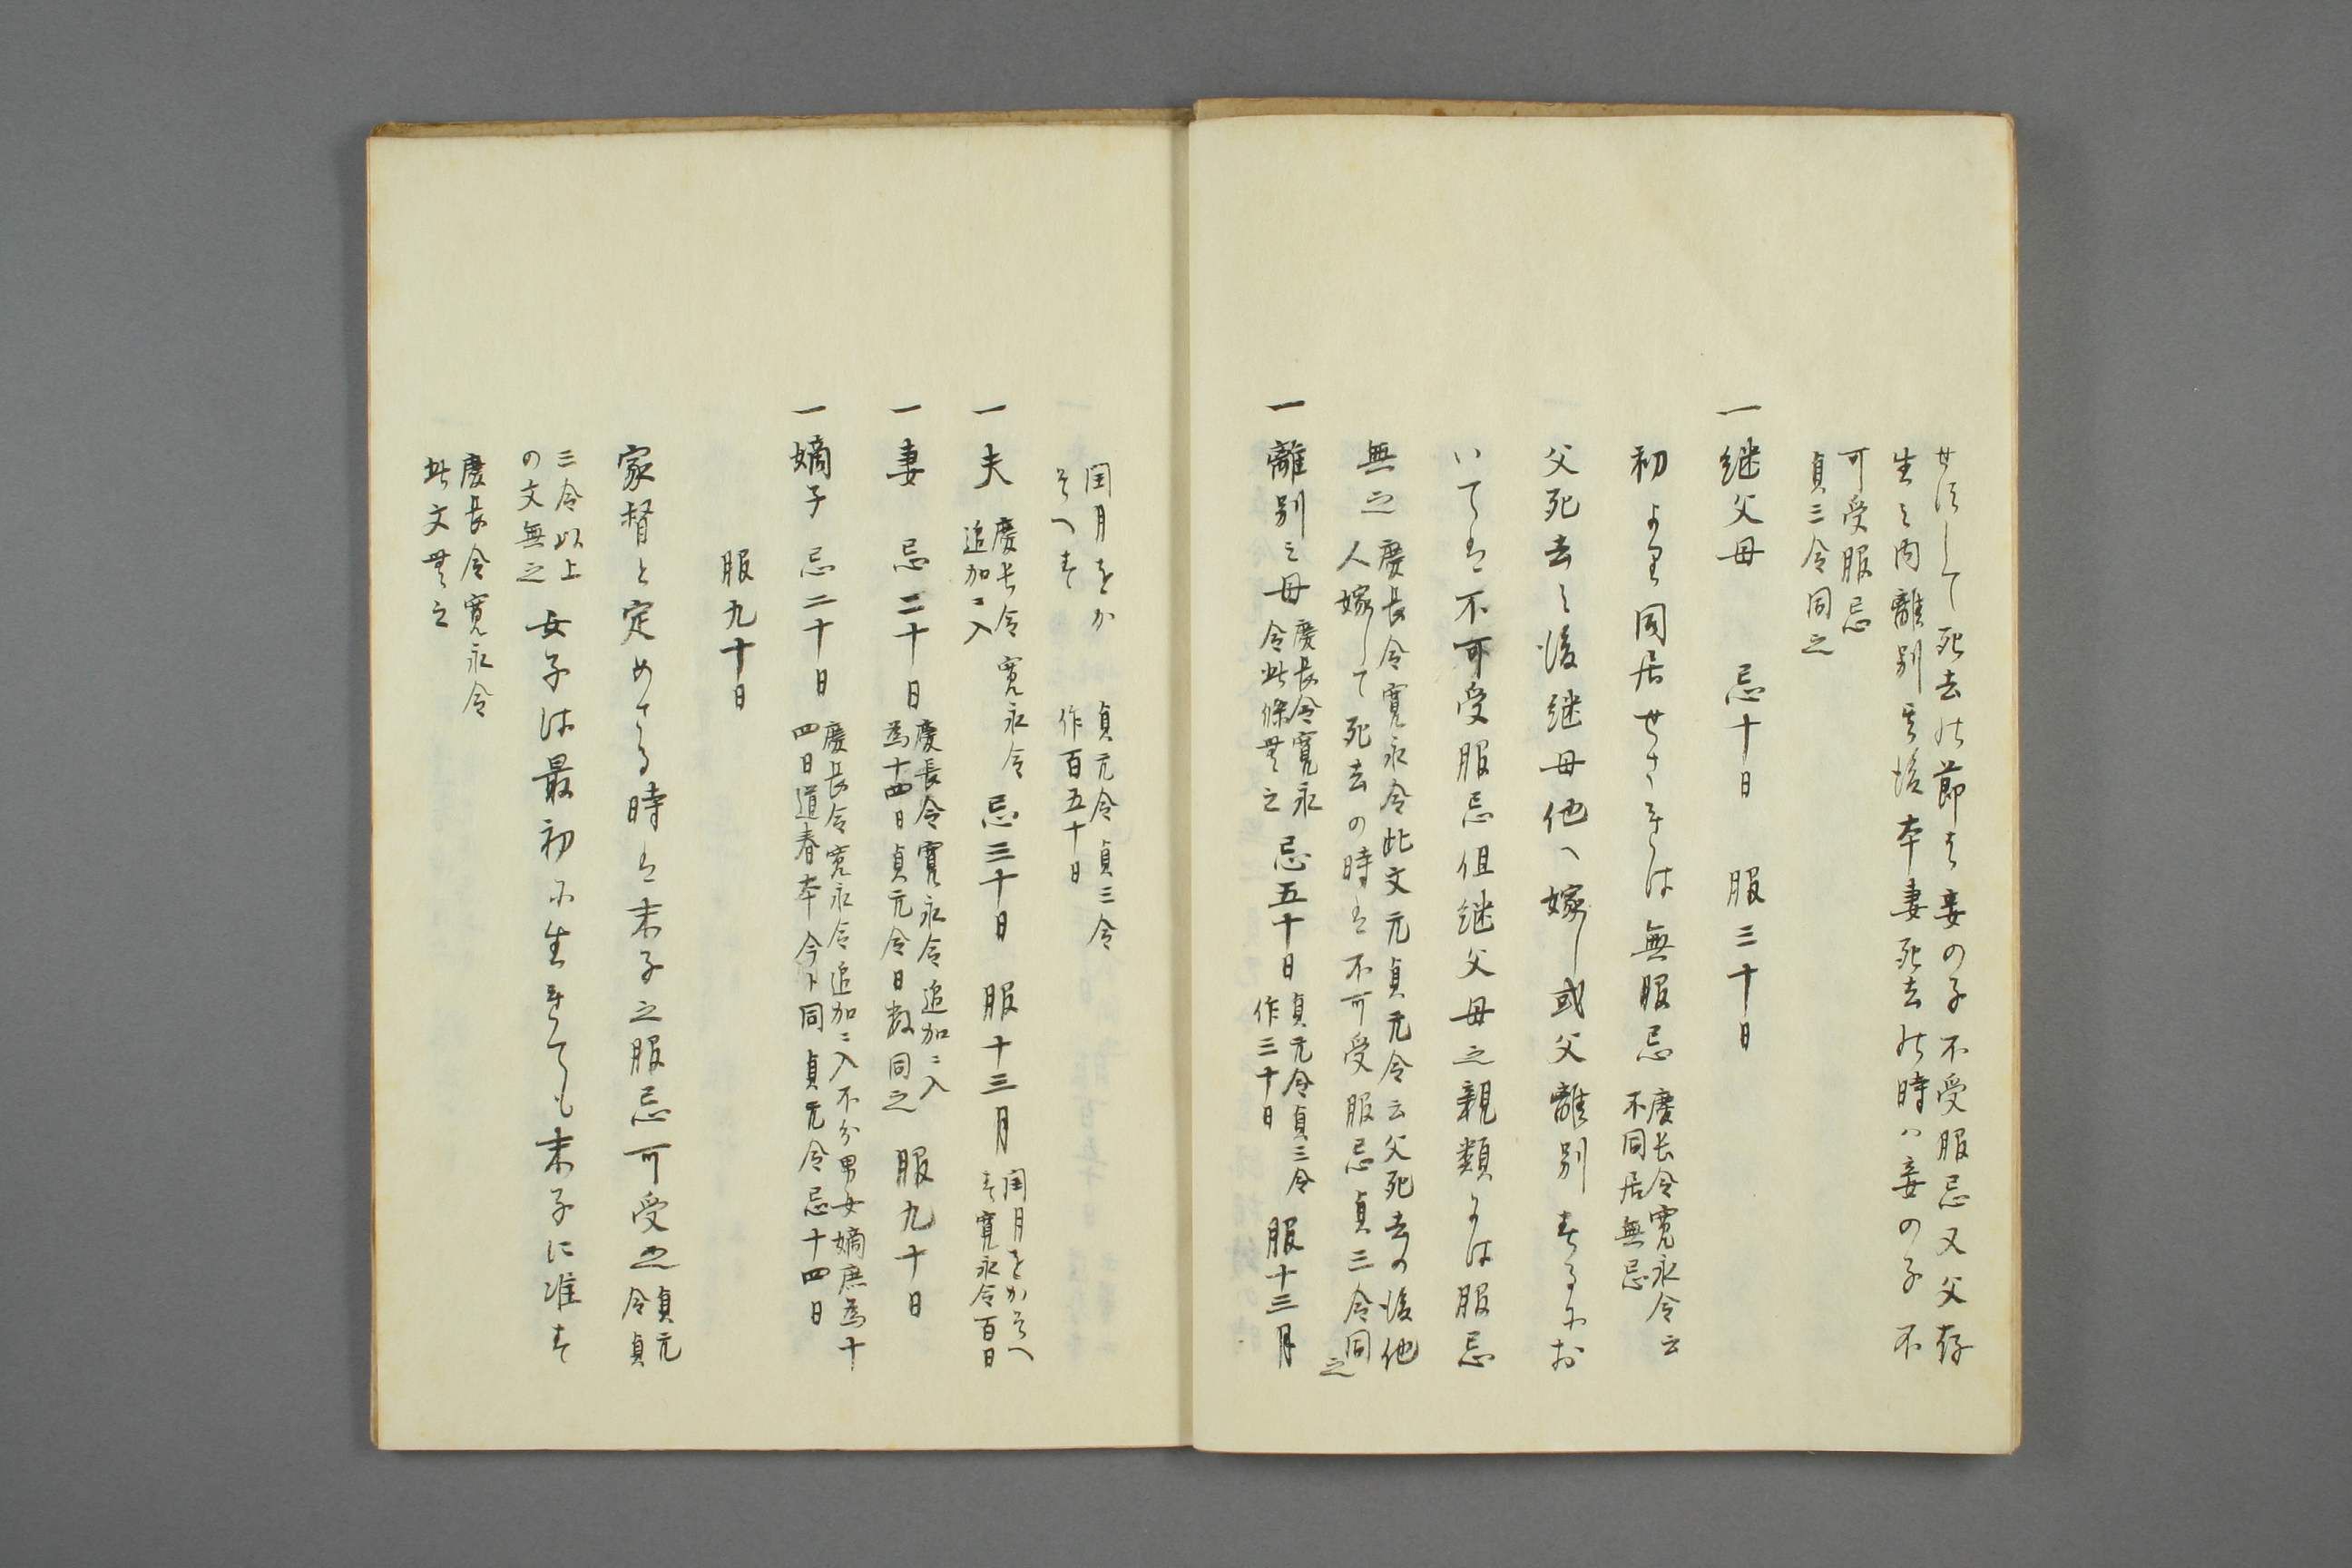 せすして死去の節は妾の子不受服忌又父存
生之内離別其後本妻死去の時ハ妾の子不
可受服忌
貞三令同之
一継父母　忌十日　服三十日
初より同居せされは無服忌
慶長令寛永令云
不同居無忌
父死去之後継母他へ嫁し或父離別するにお
いては不可受服忌但継父母之親類には服忌
無之
慶長令寛永令此文元貞元令云父死去の後他
人嫁して死去の時は不可受服忌貞三令同之
一離別之母
慶長令寛永
令此條無之
忌五十日
貞元令貞三令
作三十日
服十三月
閏月をか
そへす
貞元令貞三令
作百五十日
一夫
慶長令寛永令
追加ニ入
忌三十日　服十三月
閏月をかそへ
す寛永令百日
一妻　忌二十日
慶長令寛永令追加ニ入
為十四日貞元令日数同之
服九十日
一嫡子　忌二十日
慶長令寛永令追加ニ入不分男女嫡庶為十
四日道春本今ト同貞元令忌十四日
服九十日
家督と定めさる時は末子之服忌可受之
貞元
令貞
三令以上
の文無之
女子は最初に生れても末子に准す
慶長令寛永令
此文無之